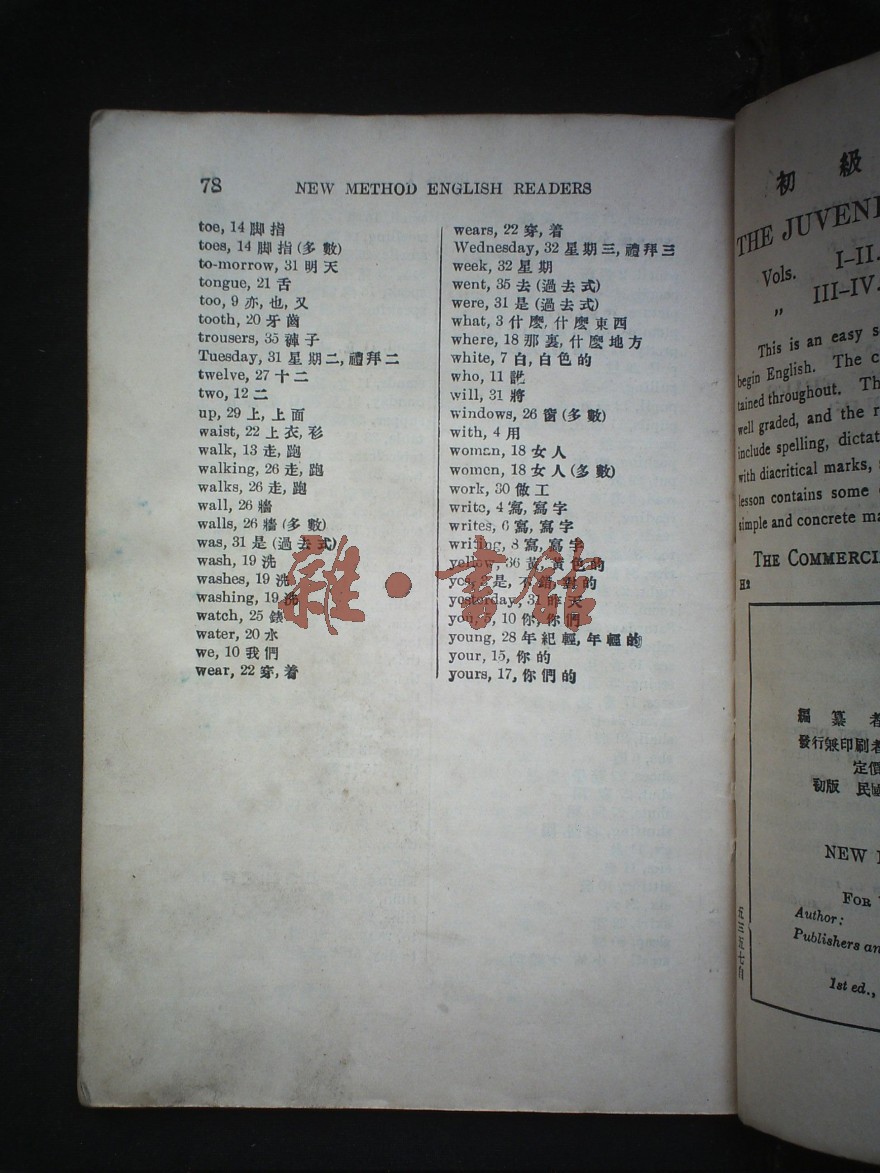 78 NEW METHOD ENGLISH READERS
toe, 14 脚指
toes, 14 脚指 (多數)
to-morrow, 31 明天
tongue, 21 舌
too, 9 亦, 也, 又
tooth, 20 牙齒
trousers, 35 褲子
Tuesday, 31 星期二, 禮拜二
twelve, 27 十二
two, 12 二
up, 29 上, 上面
waist, 22 上衣, 衫
walk, 13 走, 跑
walking, 26 走, 跑
walks, 26 走, 跑
wall, 26 牆
walls, 26 牆 (多數)
was, 31 是 (過去式)
wash, 19 洗
washes, 19 洗
washing, 19 洗
watch, 25 錶
water, 20 水
we, 10 我們
wear, 22 穿, 着
wears, 22 穿, 着
Wednesday, 32 星期三, 禮拜三
week, 32 星期
went, 35 去 (過去式)
were, 31 是 (過去式)
what, 3 什麽, 什麽東西
where, 18 那裏, 什麽地方
white, 7 白, 白色的
who, 11 誰
will, 31 將
windows, 26 窗 (多數)
with, 4 用
woman, 18 女人
women, 18 女人 (多數)
work, 30 做工
write, 4 寫, 寫字
writes, 6 寫, 寫字
writing, 8 寫, 寫字
yellow, 36 黃, 黃色的
yes, 是, 不錯, 對的
yesterday, 31 昨天
you, 10 你, 你們
young, 28 年紀輕, 年輕的
your, 15, 你的
yours, 17, 你們的
雜·書館
初級
THE JUVENI
Vols. I–II.
„ III–IV.
This is an easy s
begin English. The c
tained throughout. Th
well graded, and the r
include spelling, dictat
with diacritical marks,
lesson contains some
simple and concrete ma
THE COMMERCI
H2
編纂者
發行兼印刷者
定價
初版 民國
NEW
FOR
Author:
Publishers an
1st ed.,